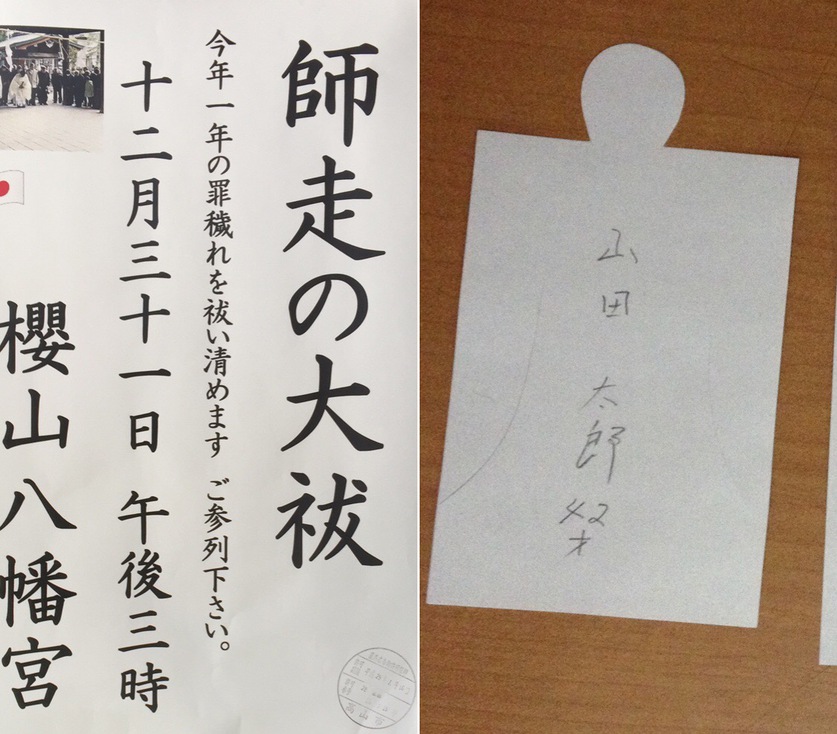 師走の大祓
今年一年の罪穢れを祓い清めます ご参列下さい。
十二月三十一日 午後三時
櫻山八幡宮
山田 太郎